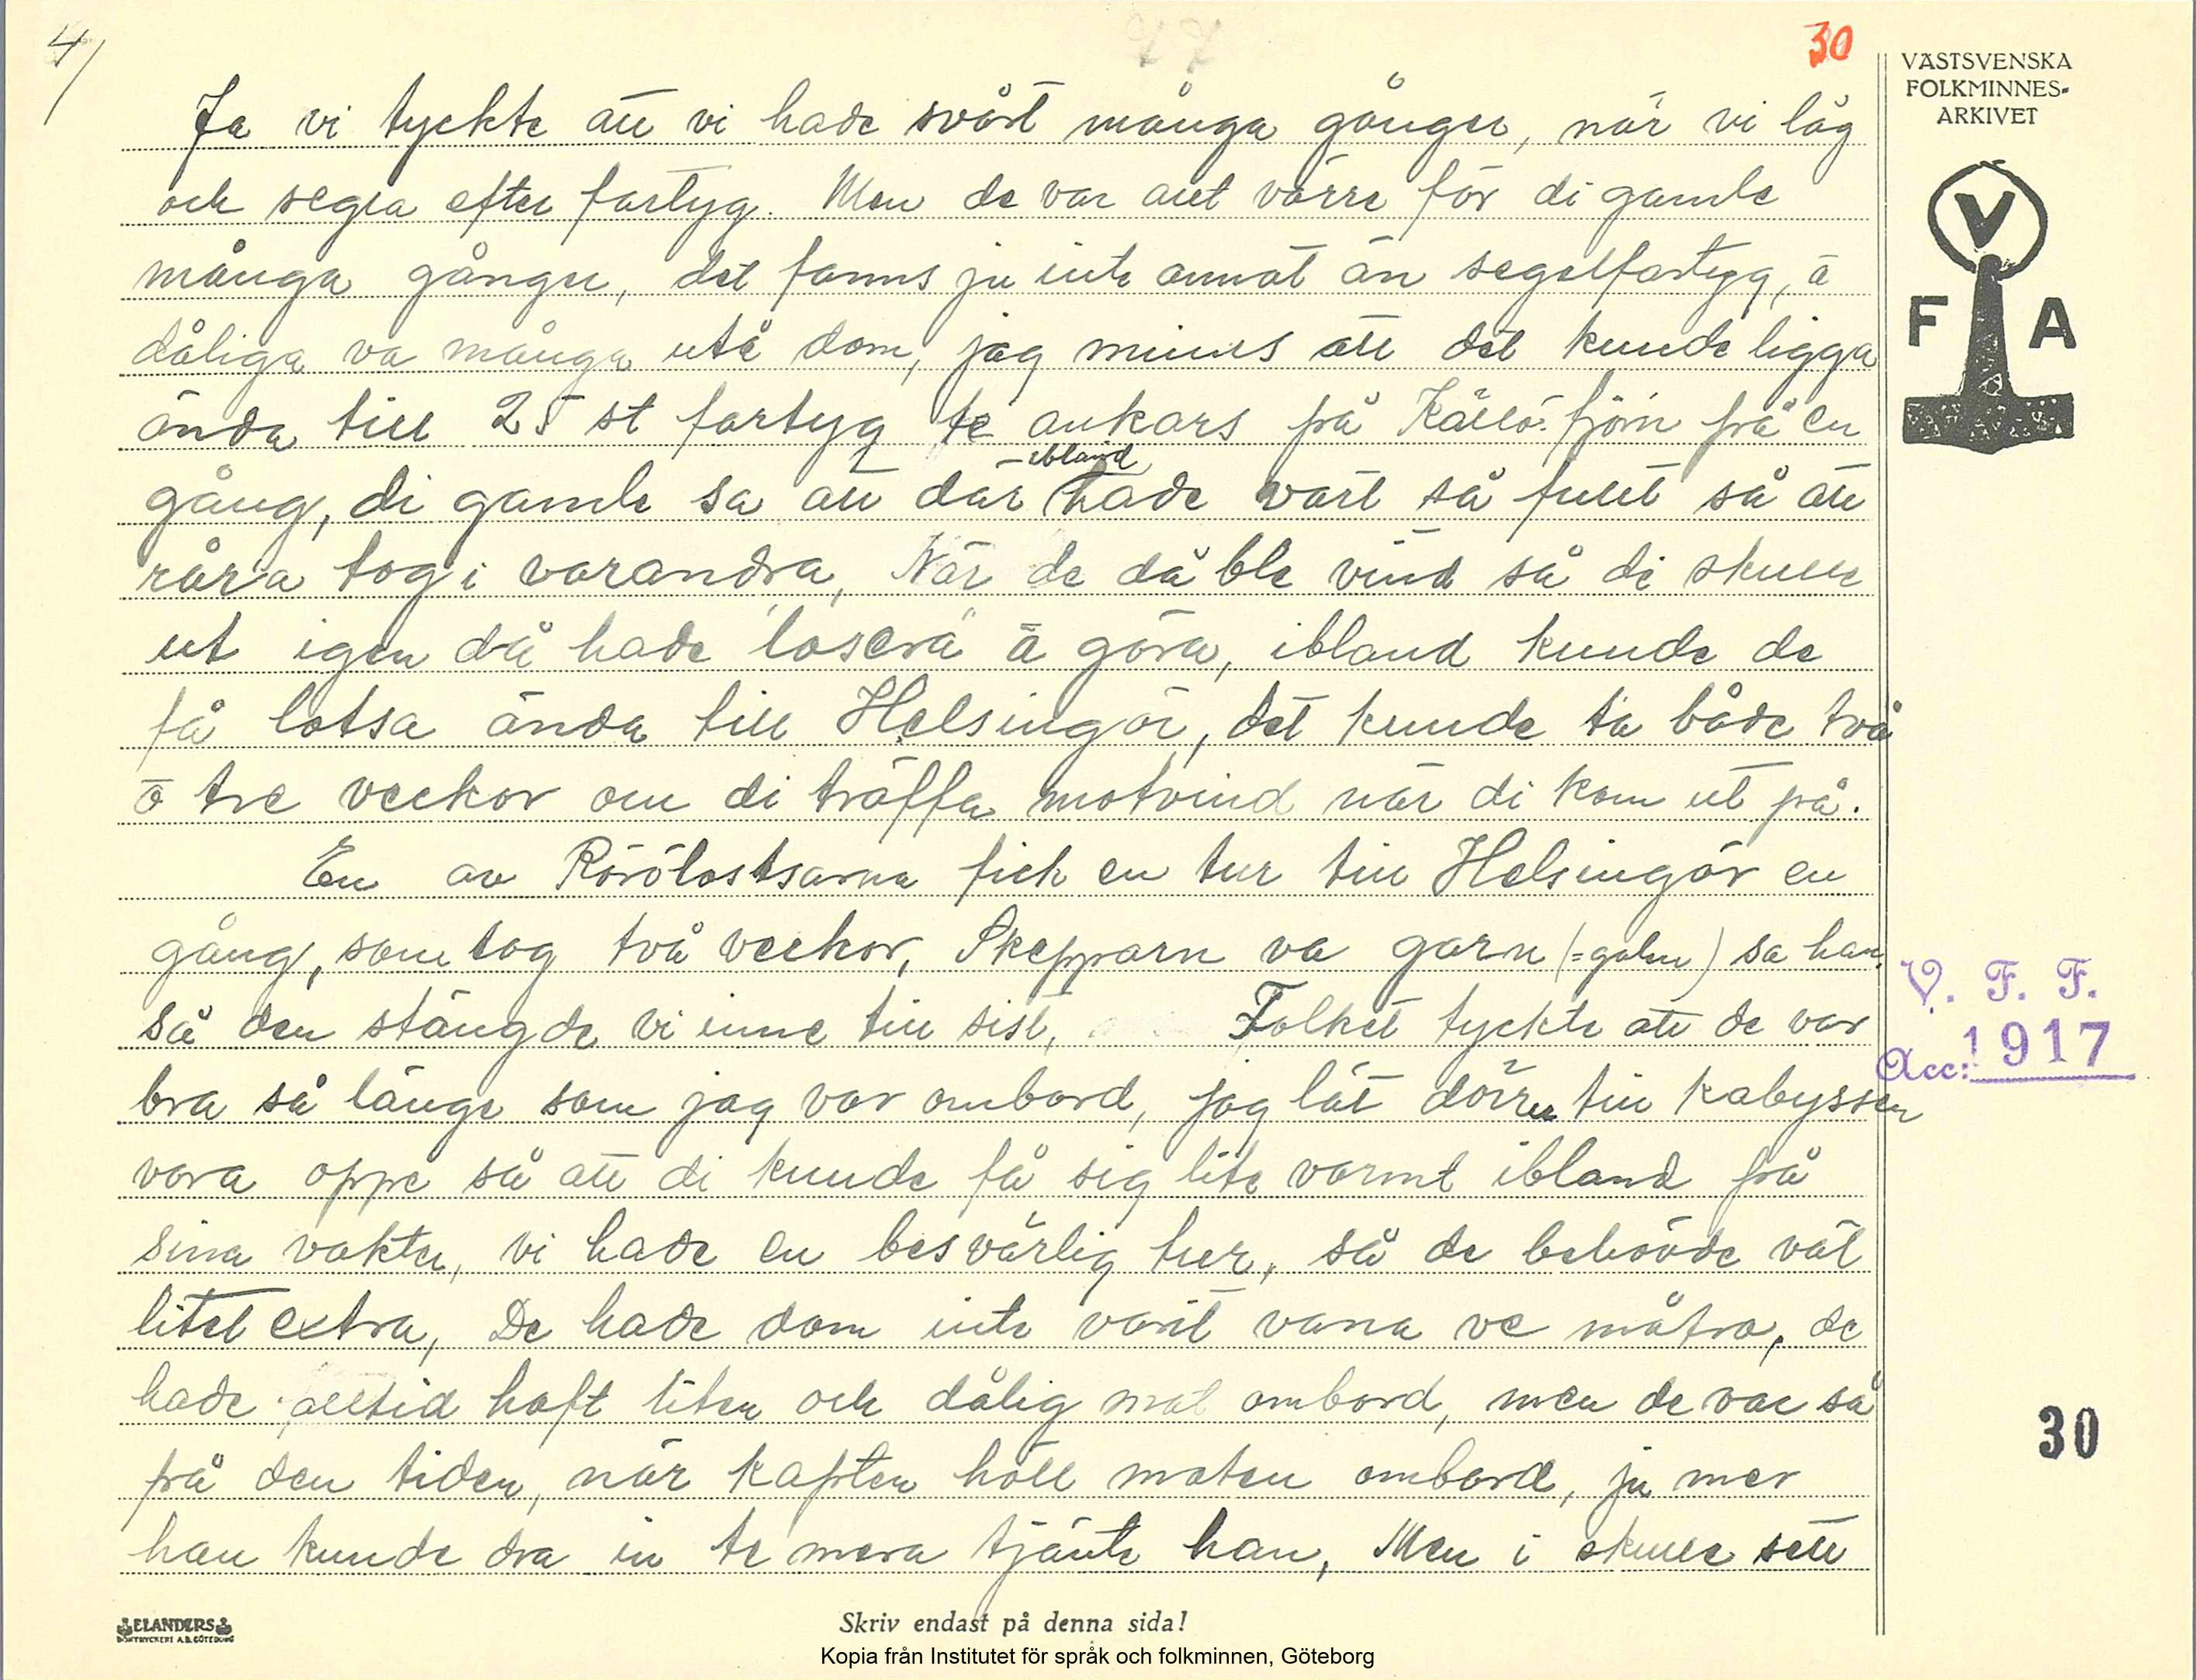 4/
30
VÄSTSVENSKA
FOLKMINNES-
ARKIVET
V
F A
Ja vi tyckte att vi hade svårt många gånger, när vi låg
och segla efter fartyg. Men de var allt värre för di gamle
många gånger, det fanns ju inte annat än segelfartyg, å
dåliga va många utå dom, jag minns att det kunde ligga
ända till 25 st fartyg te ankars på Källö-fjörn på en
ibland
gång, di gamle sa att där hade vart så fullt så att
råra tog i varandra, När de då ble vind så di skulle
ut igen då hade loserä å göra, ibland kunde de
få lotsa ända till Helsingör, det kunde ta både två
ö tre veckor om di träffa motvind när di kom ut på.
En av Rörölostsarna fick en tur till Helsingör en
gång, som tog två veckor, Skepparn va garn (=galen) sa han
så den stängde vi inne till sist, Folket tyckte att de var
bra så länge som jag var ombord, jag lät dörren till kabyssen
vara oppe så att di kunde få sig lite varmt ibland på
sina vakter, vi hade en besvärlig tur, så de behövde väl
litet extra, De hade dom inte varit vana ve måtro, de
hade alltid haft liten och dålig mat ombord, men de var så
på den tiden, när kapten höll maten ombord, ju mer
han kunde dra in te mera tjänte han, Men i skulle sett
V. F. F.
Acc: 1917
30
ELANDERS
BOKTRYCKERI A.B. GÖTEBORG
Skriv endast på denna sida!
Kopia från Institutet för språk och folkminnen, Göteborg